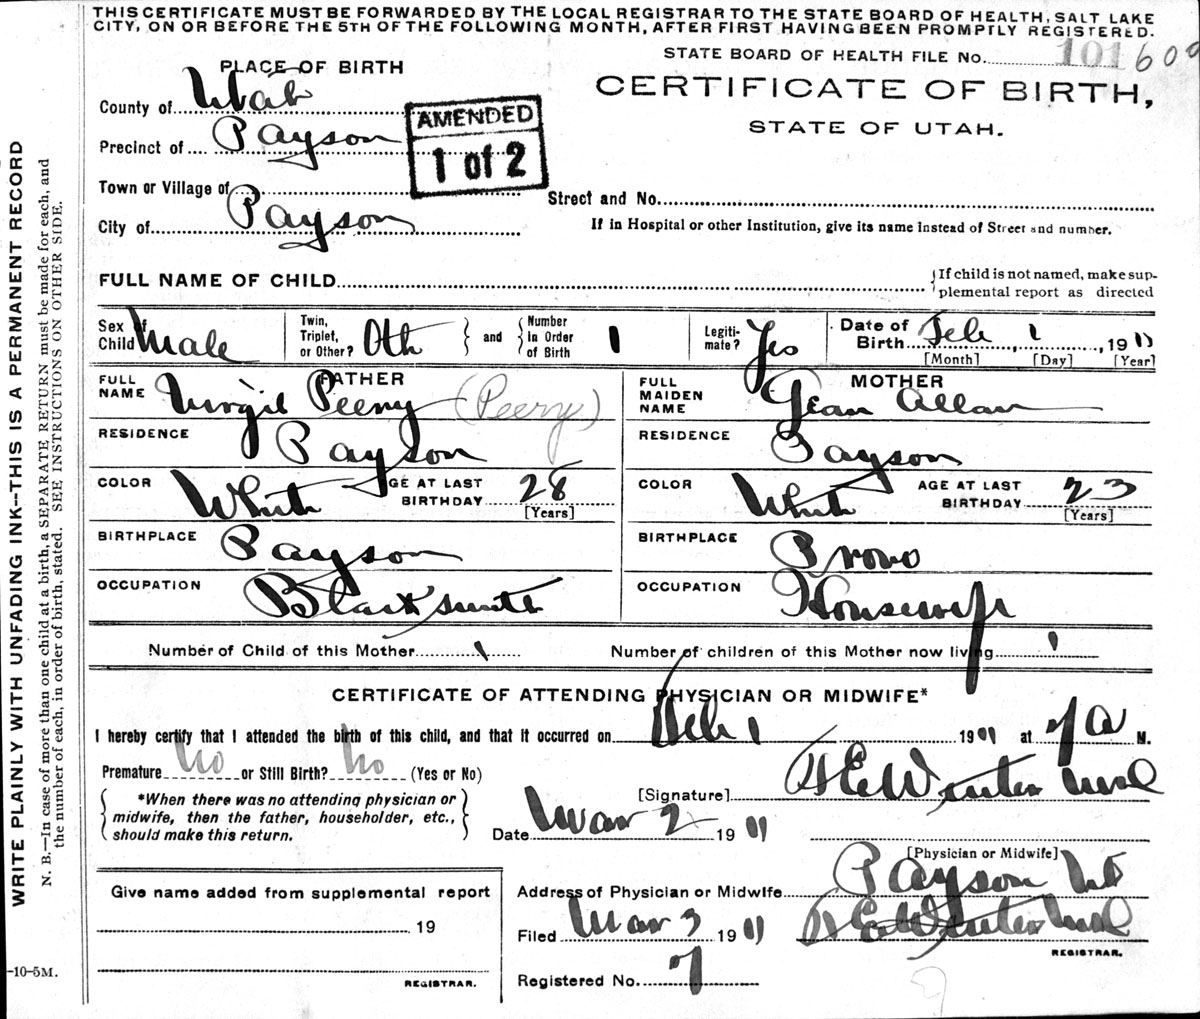 THIS CERTIFICATE MUST BE FORWARDED BY THE LOCAL REGISTRAR TO THE STATE BOARD OF HEALTH, SALT LAKE
CITY, ON OR BEFORE THE 5TH OF THE FOLLOWING MONTH, AFTER FIRST HAVING BEEN PROMPTLY REGISTERED.
STATE BOARD OF HEALTH FILE No. 101
PLACE OF BIRTH
CERTIFICATE OF BIRTH,
STATE OF UTAH.
County of Utah
AMENDED
1 of 2
Precinct of Payson
Town or Village of
Street and No.
City of Payson
If in Hospital or other Institution, give its name instead of Street and number.
FULL NAME OF CHILD
{If child is not named, make sup-
plemental report as directed
Sex of Child Male
Twin, Triplet, or Other? Oth } and { Number In Order of Birth 1
Legiti-mate? Yes
Date of Birth Feb 1, 1911
[Month] [Day] [Year]
FATHER
FULL NAME Virgil Peery (Peery)
MOTHER
FULL MAIDEN NAME Jean Allan
RESIDENCE Payson
RESIDENCE Payson
COLOR White AGE AT LAST BIRTHDAY 28 [Years]
COLOR White AGE AT LAST BIRTHDAY 23 [Years]
BIRTHPLACE Payson
BIRTHPLACE Provo
OCCUPATION Blacksmith
OCCUPATION Housewife
Number of Child of this Mother 1 Number of children of this Mother now living 1
CERTIFICATE OF ATTENDING PHYSICIAN OR MIDWIFE*
I hereby certify that I attended the birth of this child, and that it occurred on Feb 1 1911 at 7 A M.
Premature No or Still Birth? No (Yes or No)
{ *When there was no attending physician or
midwife, then the father, householder, etc.,
should make this return. }
[Signature] Winter
Date Mar 2 1911
[Physician or Midwife]
Give name added from supplemental report
19
REGISTRAR.
Address of Physician or Midwife Payson Ut
Filed Mar 3 1911 Winter
REGISTRAR.
Registered No. 7
WRITE PLAINLY WITH UNFADING INK--THIS IS A PERMANENT RECORD
N. B.—In case of more than one child at a birth, a SEPARATE RETURN must be made for each, and
the number of each, in order of birth, stated. SEE INSTRUCTIONS ON OTHER SIDE.
-10-5M.